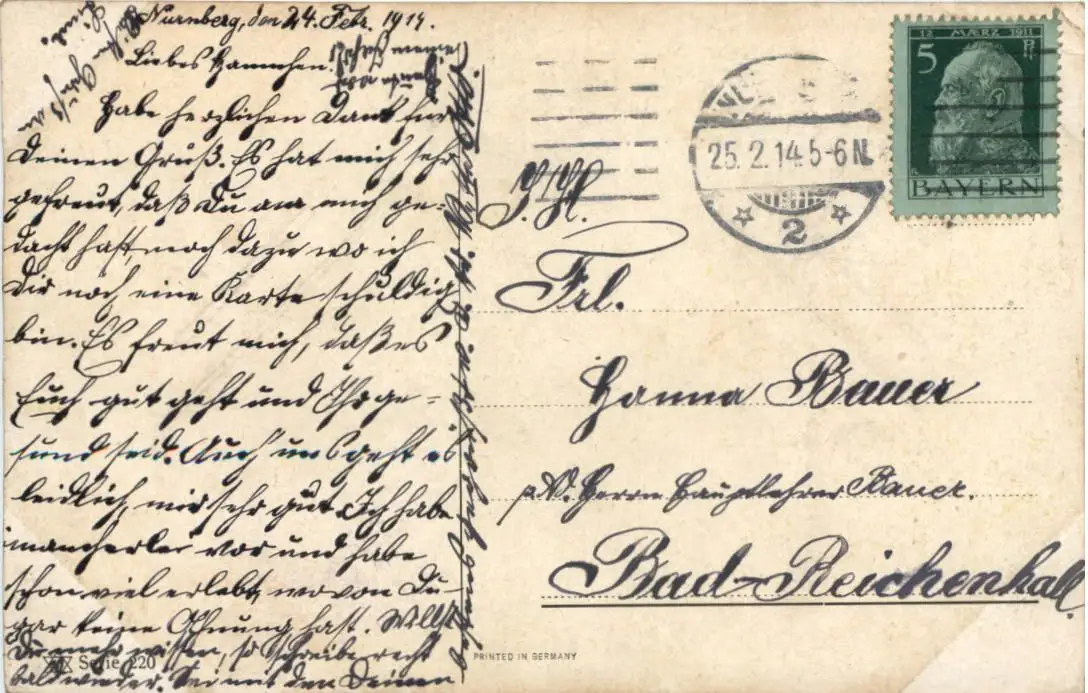 Nürnberg, den 24. Febr. 1914.
Liebes Hannchen.
Habe herzlichen Dank für
Deinen Gruß. Es hat mich sehr
gefreut, daß Du an mich ge-
dacht hast, noch dazu wo ich
Dir noch eine Karte schuldig
bin. Es freut mich, daß es
Euch gut geht und Ihr ge-
sund seid. Auch uns geht es
leidlich, mir sehr gut. Ich habe
mancherlei vor und habe
schon viel erlebt, wovon Du
gar keine Ahnung hast. Willst
Du mehr wissen, so schreibe recht
bald wieder. Sei mit den Deinen
herzlich gegrüßt
meinem
Serie 220
12 MÆRZ 1911
5 Pf
BAYERN
25. 2. 14. 5-6 N.
2
Frl.
Hanna Bauer
p. Ad. Herrn Hauptlehrer Bauer.
Bad-Reichenhall
PRINTED IN GERMANY